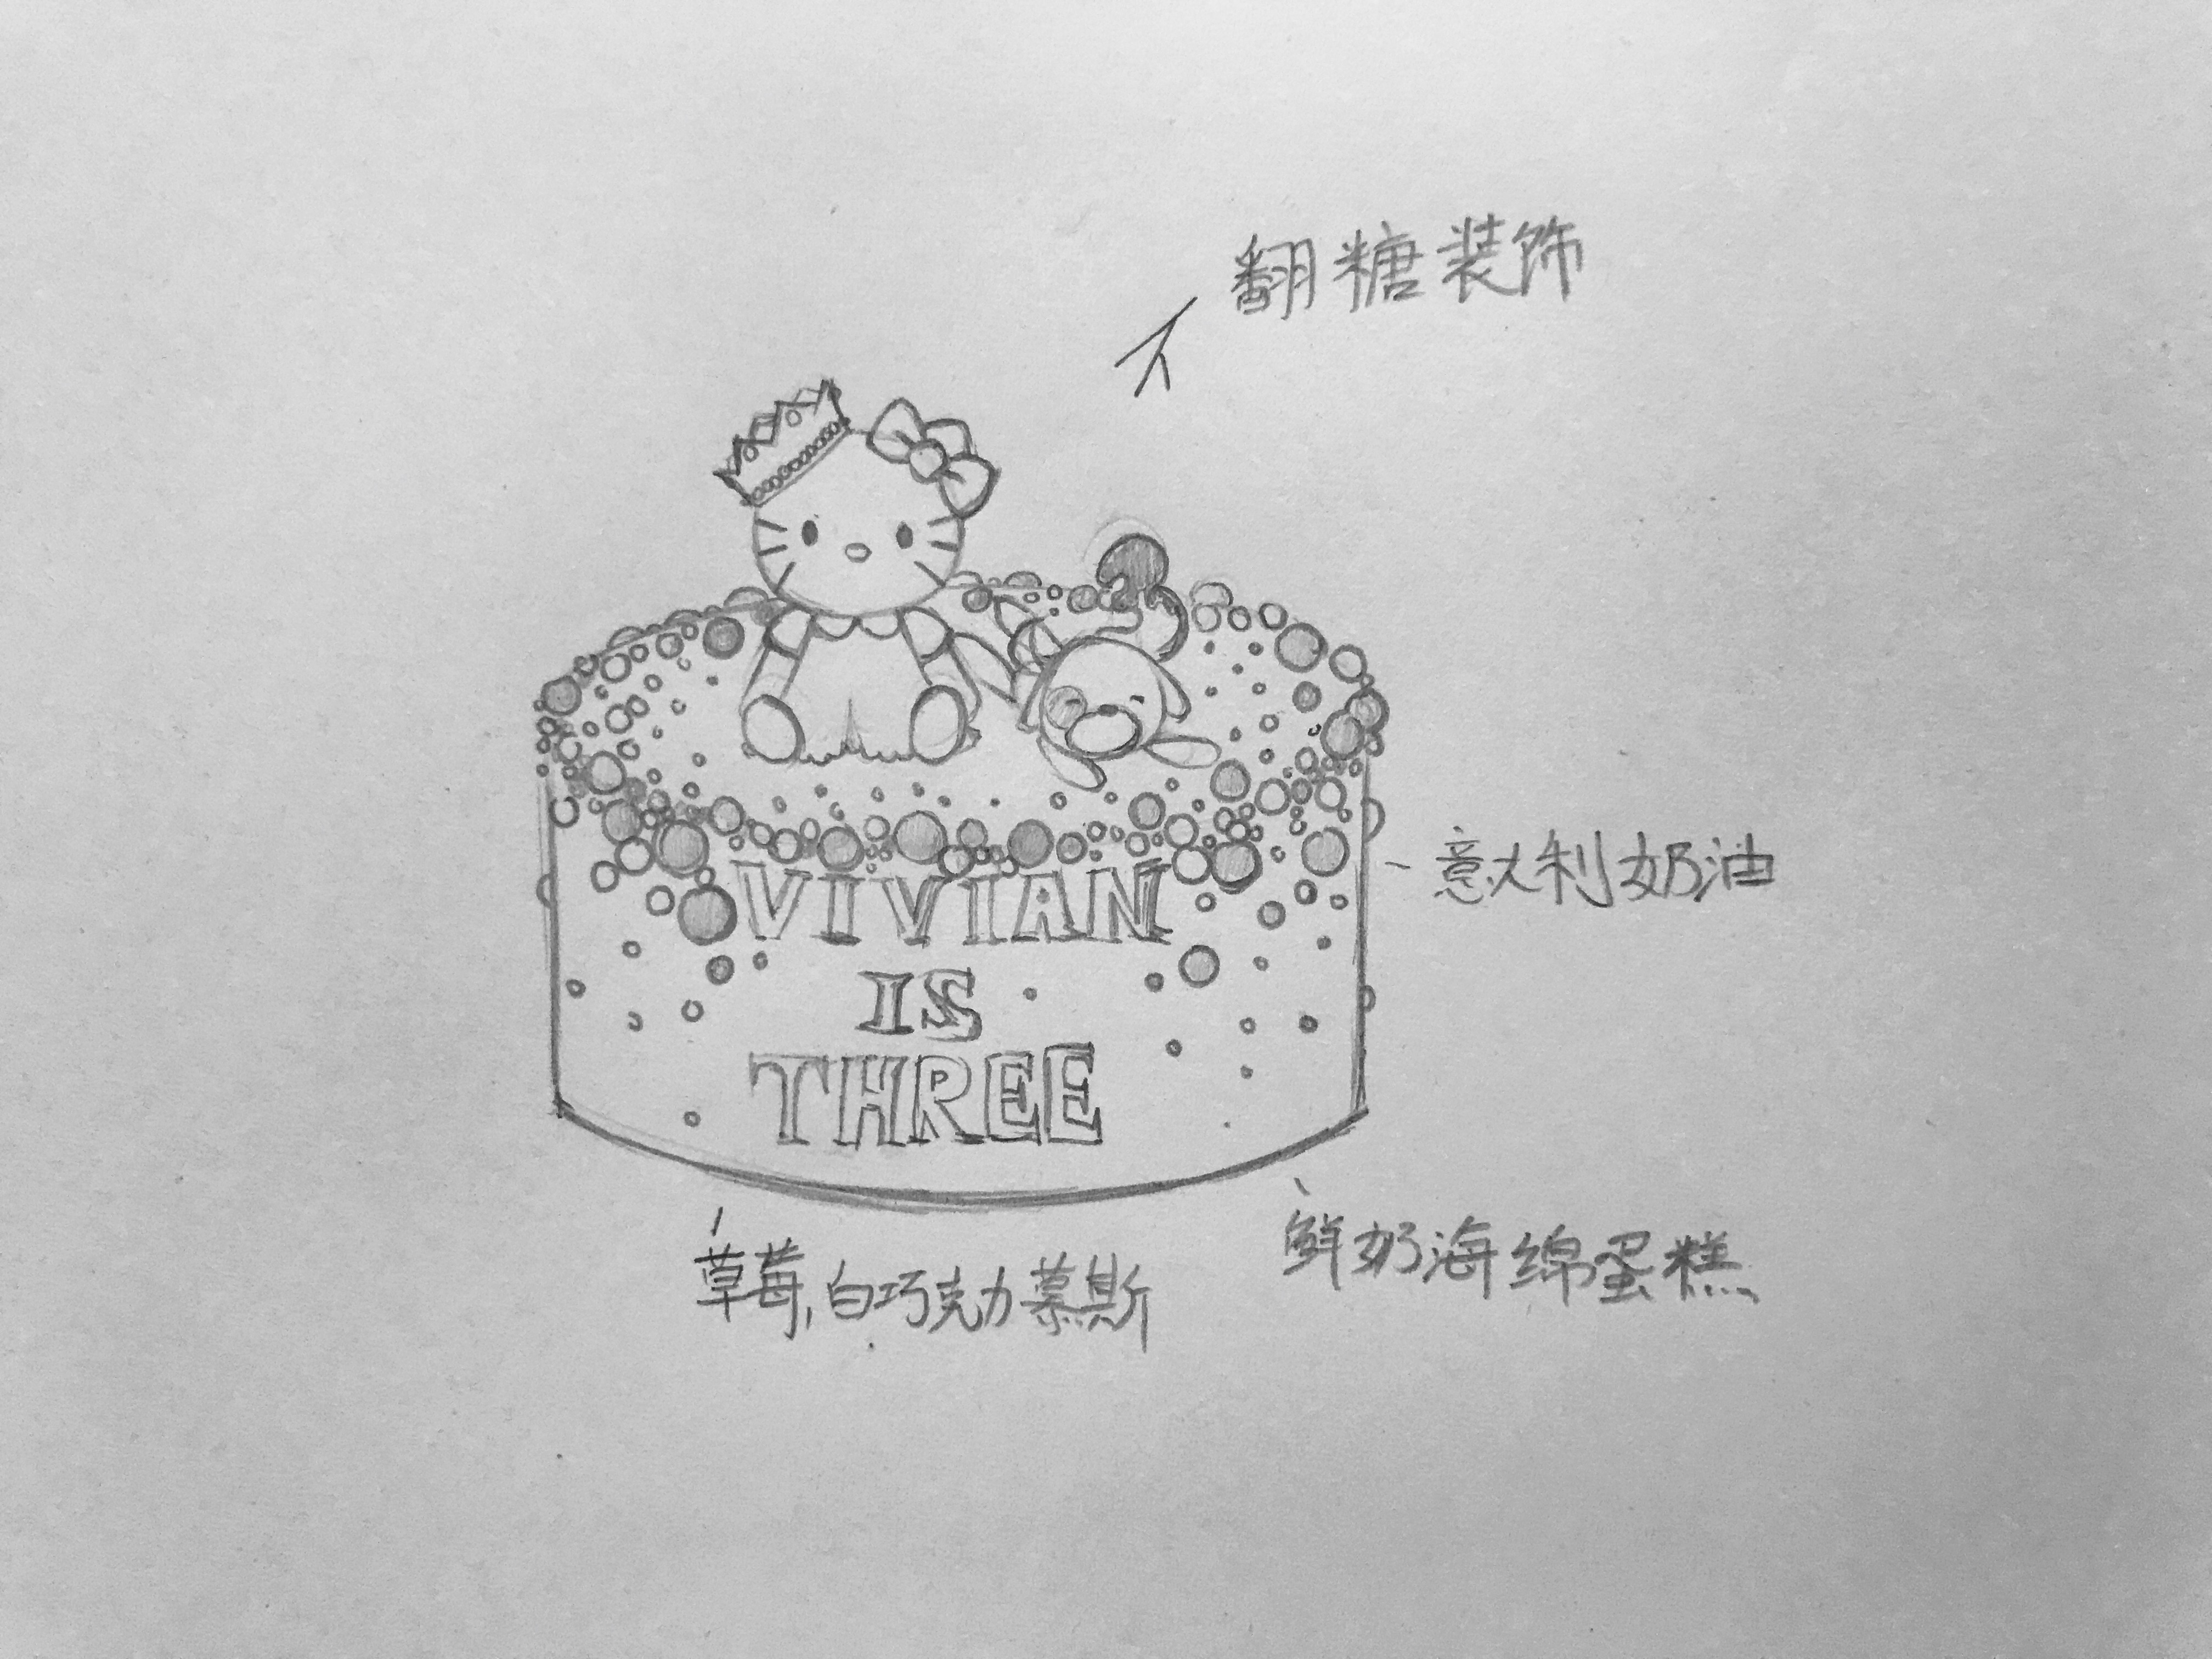 翻糖装饰
意大利奶油
VIVIAN
IS
THREE
鲜奶海绵蛋糕
草莓,白巧克力慕斯